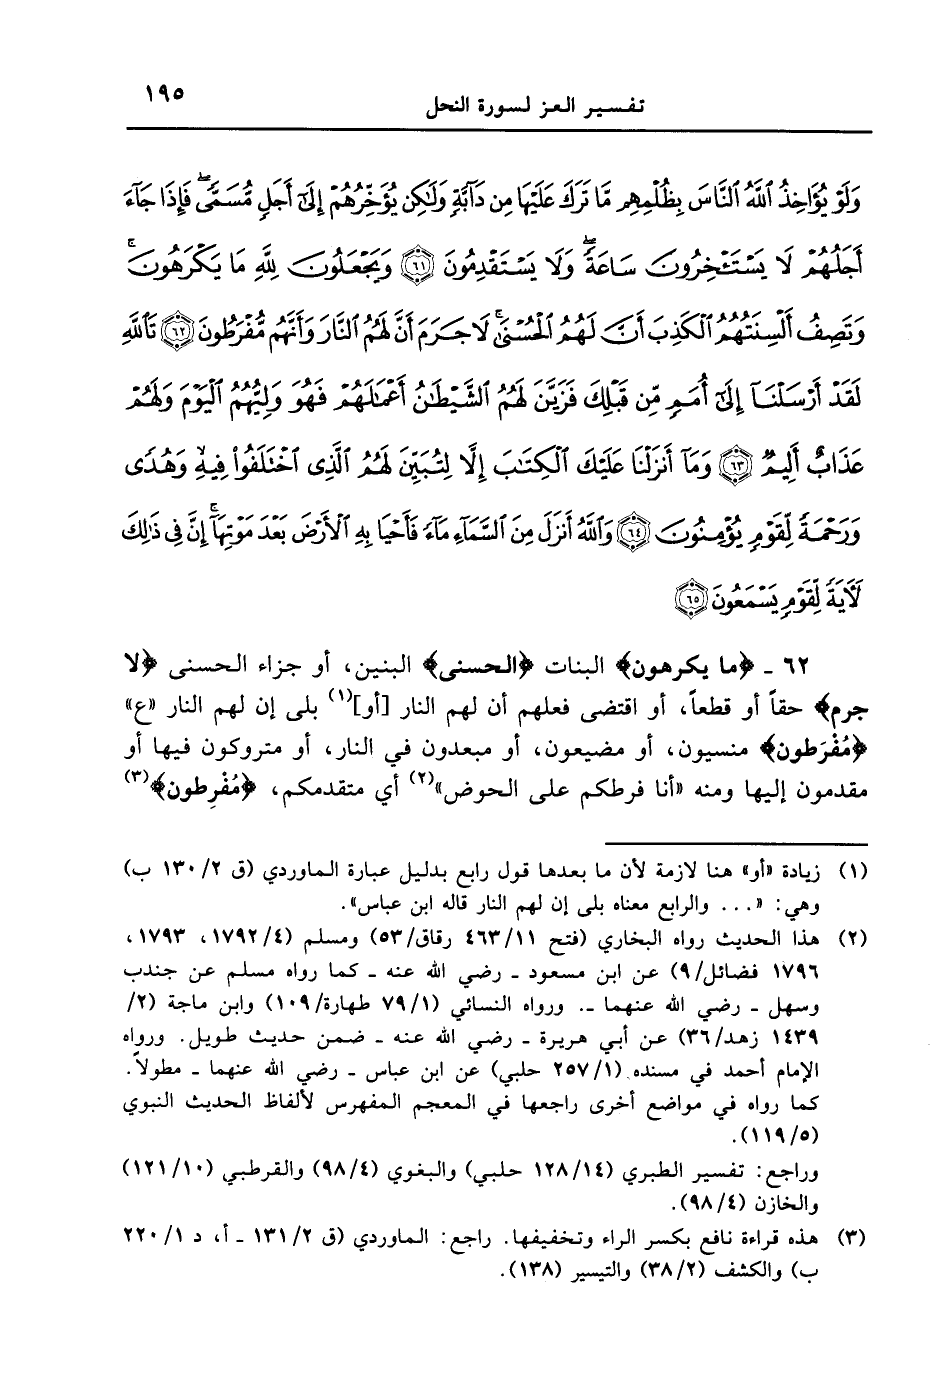 ١٩٥
تفسير العز لسورة النحل
وَلَوْ يُؤَاخِذُ ٱللَّهُ ٱلنَّاسَ بِظُلْمِهِم مَّا تَرَكَ عَلَيْهَا مِن دَآبَّةٍ وَلَٰكِن يُؤَخِّرُهُمْ إِلَىٰٓ أَجَلٍ مُّسَمًّى ۖ فَإِذَا جَآءَ
أَجَلُهُمْ لَا يَسْتَـْٔخِرُونَ سَاعَةً ۖ وَلَا يَسْتَقْدِمُونَ ﴿٦١﴾ وَيَجْعَلُونَ لِلَّهِ مَا يَكْرَهُونَ ۚ
وَتَصِفُ أَلْسِنَتُهُمُ ٱلْكَذِبَ أَنَّ لَهُمُ ٱلْحُسْنَىٰ ۚ لَا جَرَمَ أَنَّ لَهُمُ ٱلنَّارَ وَأَنَّهُم مُّفْرَطُونَ ﴿٦٢﴾ تَٱللَّهِ
لَقَدْ أَرْسَلْنَآ إِلَىٰٓ أُمَمٍ مِّن قَبْلِكَ فَزَيَّنَ لَهُمُ ٱلشَّيْطَٰنُ أَعْمَٰلَهُمْ فَهُوَ وَلِيُّهُمُ ٱلْيَوْمَ وَلَهُمْ
عَذَابٌ أَلِيمٌ ﴿٦٣﴾ وَمَآ أَنزَلْنَا عَلَيْكَ ٱلْكِتَٰبَ إِلَّا لِتُبَيِّنَ لَهُمُ ٱلَّذِى ٱخْتَلَفُوا۟ فِيهِ ۙ وَهُدًى
وَرَحْمَةً لِّقَوْمٍ يُؤْمِنُونَ ﴿٦٤﴾ وَٱللَّهُ أَنزَلَ مِنَ ٱلسَّمَآءِ مَآءً فَأَحْيَا بِهِ ٱلْأَرْضَ بَعْدَ مَوْتِهَآ ۚ إِنَّ فِى ذَٰلِكَ
لَـَٔايَةً لِّقَوْمٍ يَسْمَعُونَ ﴿٦٥﴾
٦٢ ـ ﴿ما يكرهون﴾ البنات ﴿الحسنى﴾ البنين، أو جزاء الحسنى ﴿لا
جرم﴾ حقاً أو قطعاً، أو اقتضى فعلهم أن لهم النار [أو](١) بلى إن لهم النار «ع»
﴿مُفْرَطون﴾ منسيون، أو مضيعون، أو مبعدون في النار، أو متروكون فيها أو
مقدمون إليها ومنه «أنا فرطكم على الحوض»(٢) أي متقدمكم، ﴿مُفْرِطون﴾(٣)
(١) زيادة «أو» هنا لازمة لأن ما بعدها قول رابع بدليل عبارة الماوردي (ق ١٣٠/٢ ب)
وهي: «... والرابع معناه بلى إن لهم النار قاله ابن عباس».
(٢) هذا الحديث رواه البخاري (فتح ٤٦٣/١١ رقاق/٥٣) ومسلم (١٧٩٢/٤، ١٧٩٣،
١٧٩٦ فضائل/٩) عن ابن مسعود ـ رضي الله عنه ـ كما رواه مسلم عن جندب
وسهل ـ رضي الله عنهما ـ. ورواه النسائي (٧٩/١ طهارة/١٠٩) وابن ماجة (٢/
١٤٣٩ زهد/٣٦) عن أبي هريرة ـ رضي الله عنه ـ ضمن حديث طويل. ورواه
الإمام أحمد في مسنده (٢٥٧/١ حلبي) عن ابن عباس ـ رضي الله عنهما ـ مطولاً.
كما رواه في مواضع أخرى راجعها في المعجم المفهرس لألفاظ الحديث النبوي
(١١٩/٥).
وراجع: تفسير الطبري (١٢٨/١٤ حلبي) والبغوي (٩٨/٤) والقرطبي (١٢١/١٠)
والخازن (٩٨/٤).
(٣) هذه قراءة نافع بكسر الراء وتخفيفها. راجع: الماوردي (ق ١٣١/٢ ـ أ، د ٢٢٠/١
ب) والكشف (٣٨/٢) والتيسير (١٣٨).